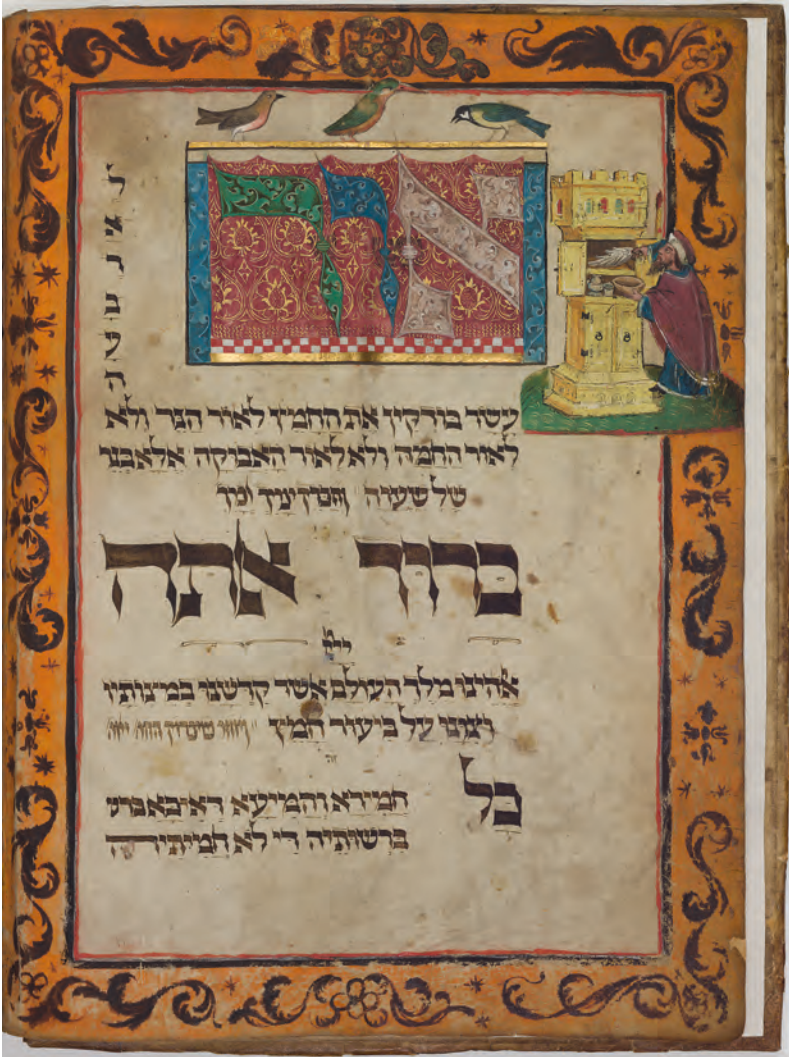 אור
לארבעה
עשר בודקין את החמץ לאור הנר ולא
לאור החמה ולא לאור האבוקה אלא בנר
של שעוה
ברוך אתה
אלהינו מלך העולם אשר קדשנו במצותיו
וצונו על ביעור חמץ
כל חמירא וחמיעא דאיכא
ברשותיה די לא חמיתיה